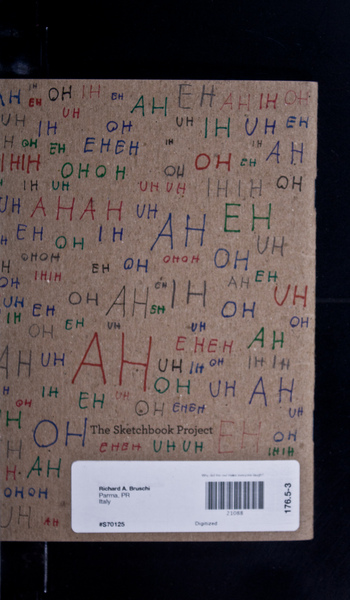 AH IH OH IH EH AH EH AH IH OH
EH UH
UH IH OH UH IH UH EH
UH OH EH EHEH IH AH
IHIH OHOH OH OH EH
IH UH UH UH IH IH OH
UH AHAH UH AH EH
EH OH IH UH
OHOH EH OH OHOH OH
IHIH AH EH
OH OH AH EH IH UH
UH EH OH
IH OH EH UH UH OH
EHEH AH
AH UH AH UH IH OH IH IH
IH OH UH AH
OH EH UH OH EHEH UH
OH The Sketchbook Project EH OH
EHEH UHUH IHIH
AH
Richard A. Bruschi
Parma, PR
Italy
#S70125
Digitized
176.5-3
OHOH
UH AH